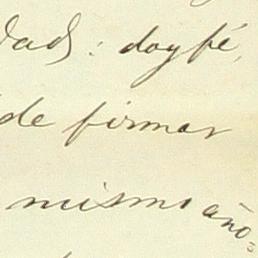 dad: doy fé,
de firmar
mismo año=